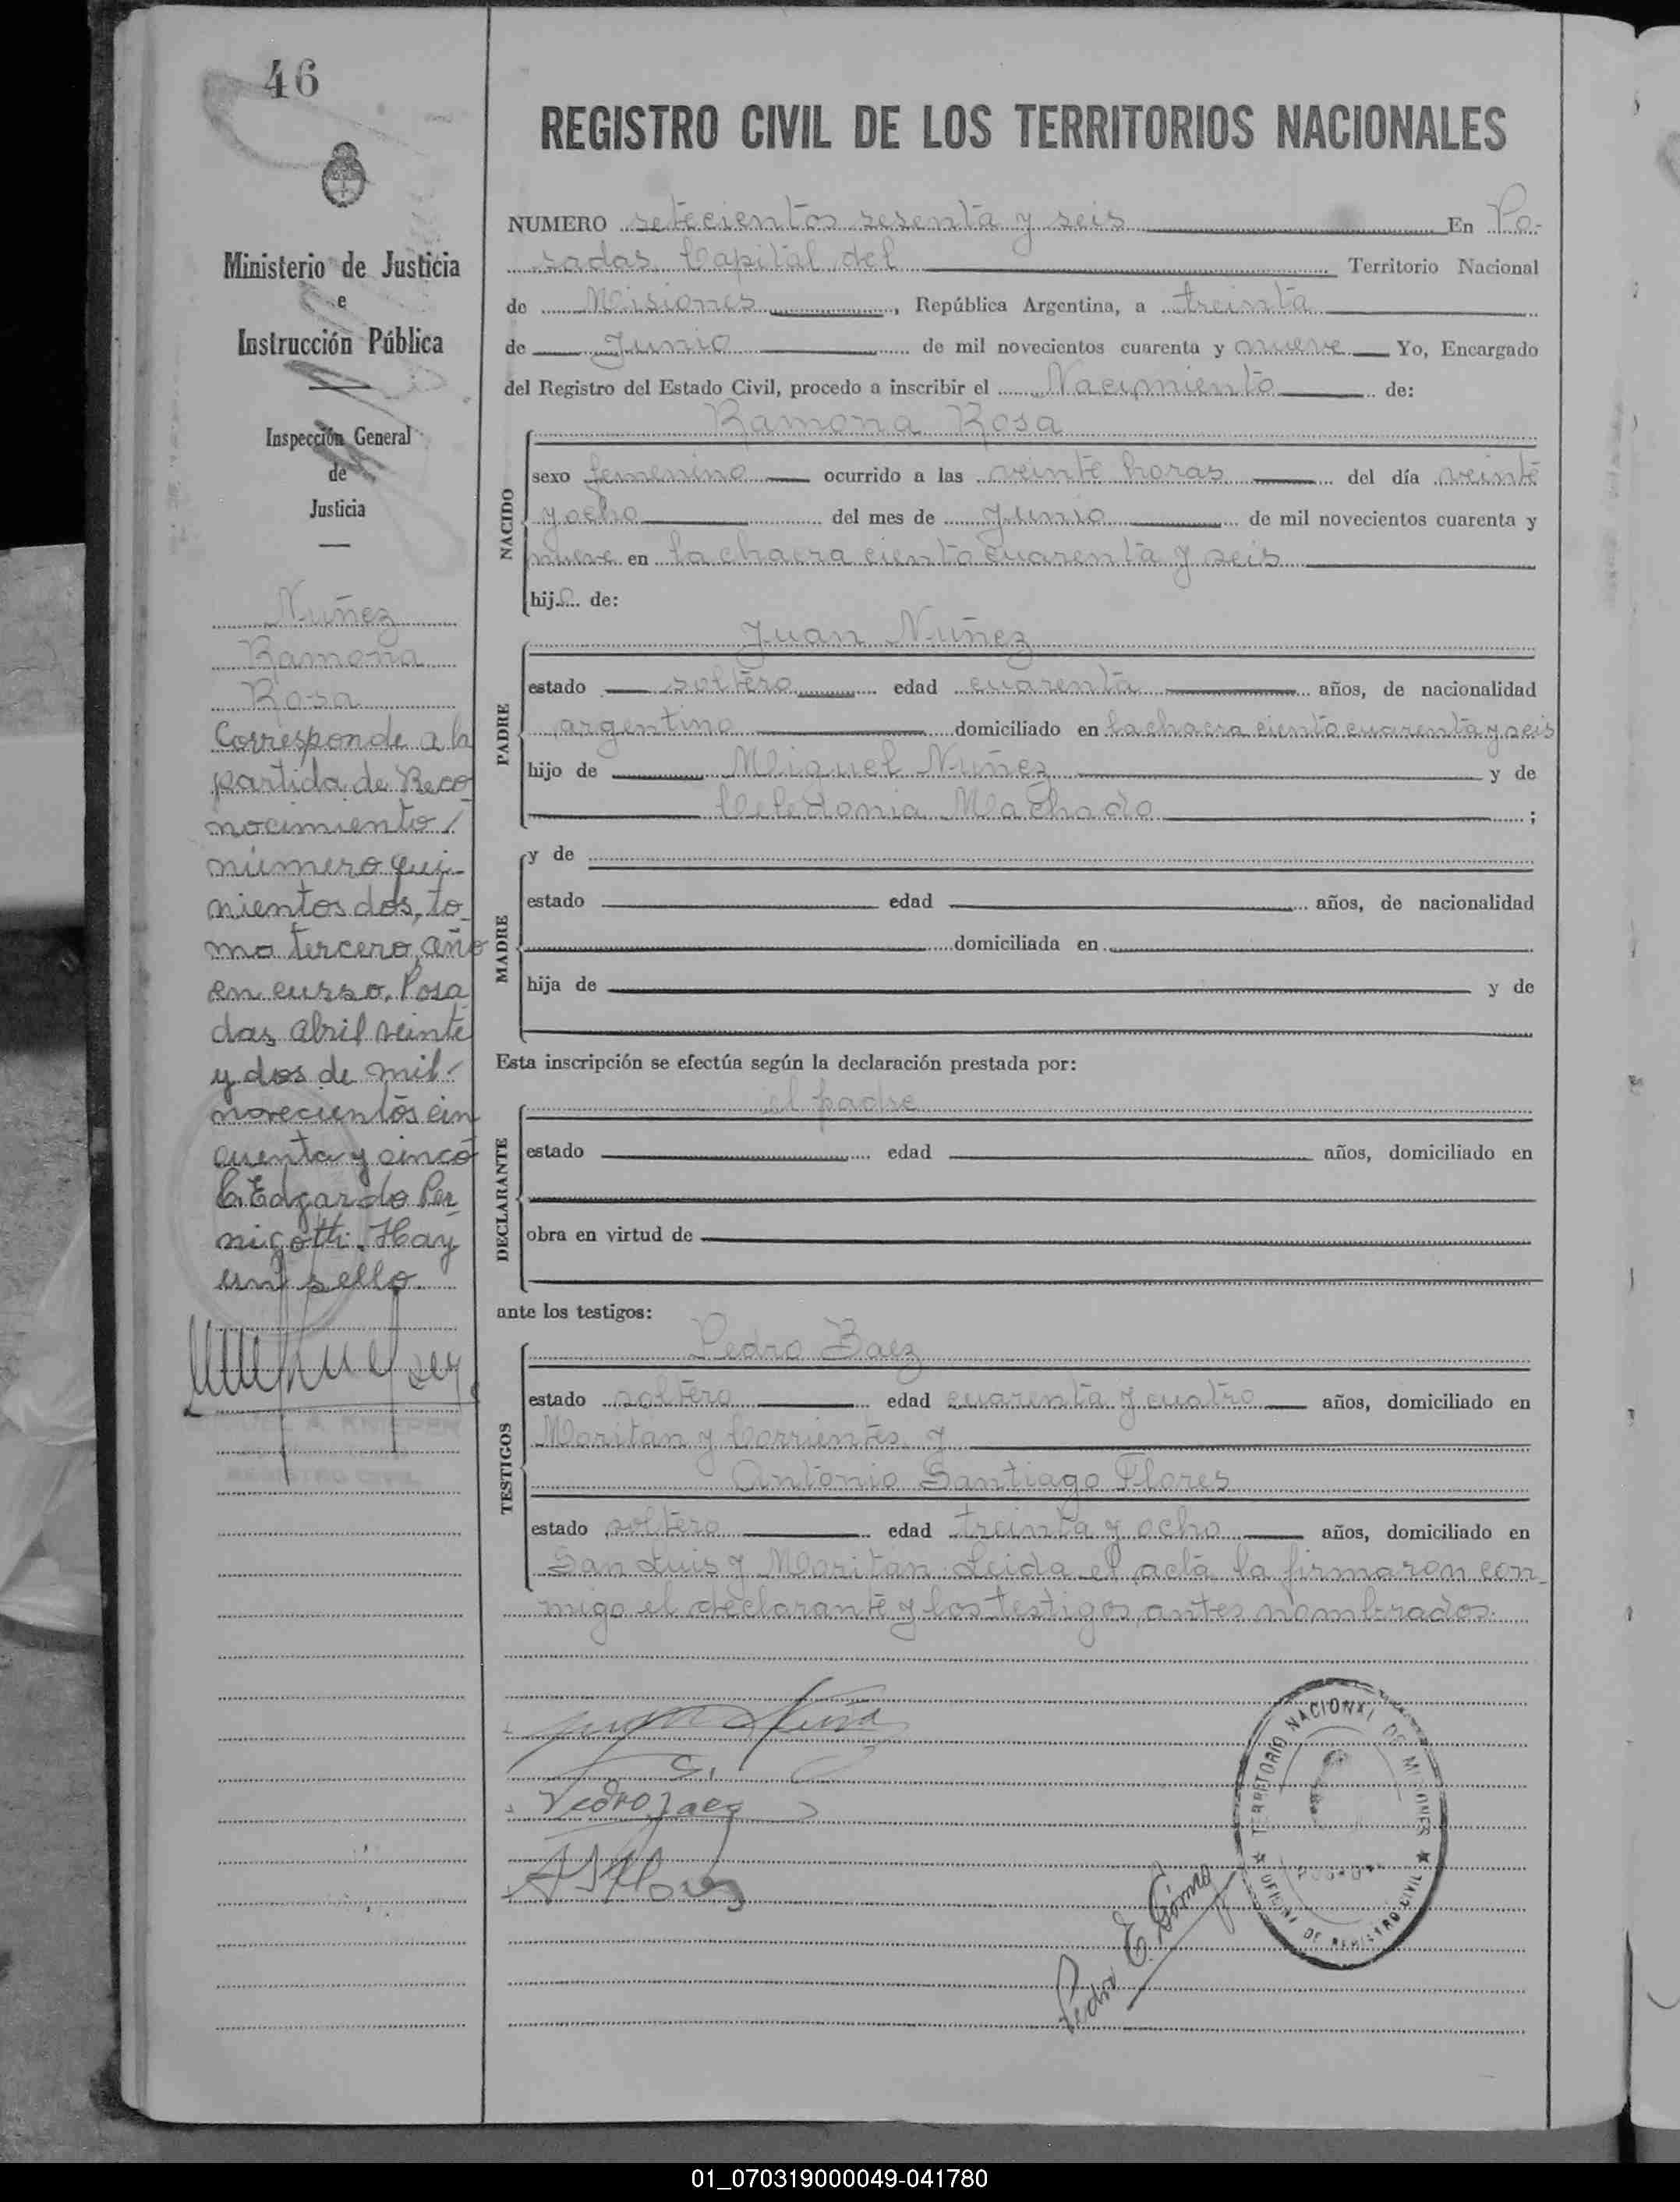 46
Ministerio de Justicia
e
Instrucción Pública
Inspección General
de
Justicia
Nuñez
Ramona
Rosa
Corresponde a la
partida de Reco
nocimiento
número qui-
nientos dos, to-
mo tercero, año
en curso. Posa
das, abril veinte
y dos de mil
novecientos cin
cuenta y cinco
C. Edgardo Per
nigotti. Hay
un sello.
REGISTRO CIVIL
REGISTRO CIVIL DE LOS TERRITORIOS NACIONALES
NUMERO setecientos sesenta y seis En Po-
sadas Capital del Territorio Nacional
de Misiones, República Argentina, a treinta
de Junio de mil novecientos cuarenta y nueve Yo, Encargado
del Registro del Estado Civil, procedo a inscribir el Nacimiento de:
NACIDO
Ramona Rosa
sexo femenino ocurrido a las veinte horas del día veinte
y ocho del mes de Junio de mil novecientos cuarenta y
nueve en la chacra ciento cuarenta y seis
hija de:
PADRE
Juan Nuñez
estado soltero edad cuarenta años, de nacionalidad
argentino domiciliado en la chacra ciento cuarenta y seis
hijo de Miguel Nuñez y de
Celedonia Machado ;
MADRE
y de
estado edad años, de nacionalidad
domiciliada en
hija de y de
Esta inscripción se efectúa según la declaración prestada por:
DECLARANTE
el padre
estado edad años, domiciliado en
obra en virtud de
ante los testigos:
TESTIGOS
Pedro Baez
estado soltero edad cuarenta y cuatro años, domiciliado en
Moritan y Corrientes y
Antonio Santiago Flores
estado soltero edad treinta y ocho años, domiciliado en
San Luis y Moritan. Leida el acta la firmaron con-
migo el declarante y los testigos antes nombrados.
Pedro Baez
A S Flores
Pedro E. Gómez
TERRITORIO NACIONAL DE MISIONES
OFICINA DE REGISTRO CIVIL
01_070319000049-041780